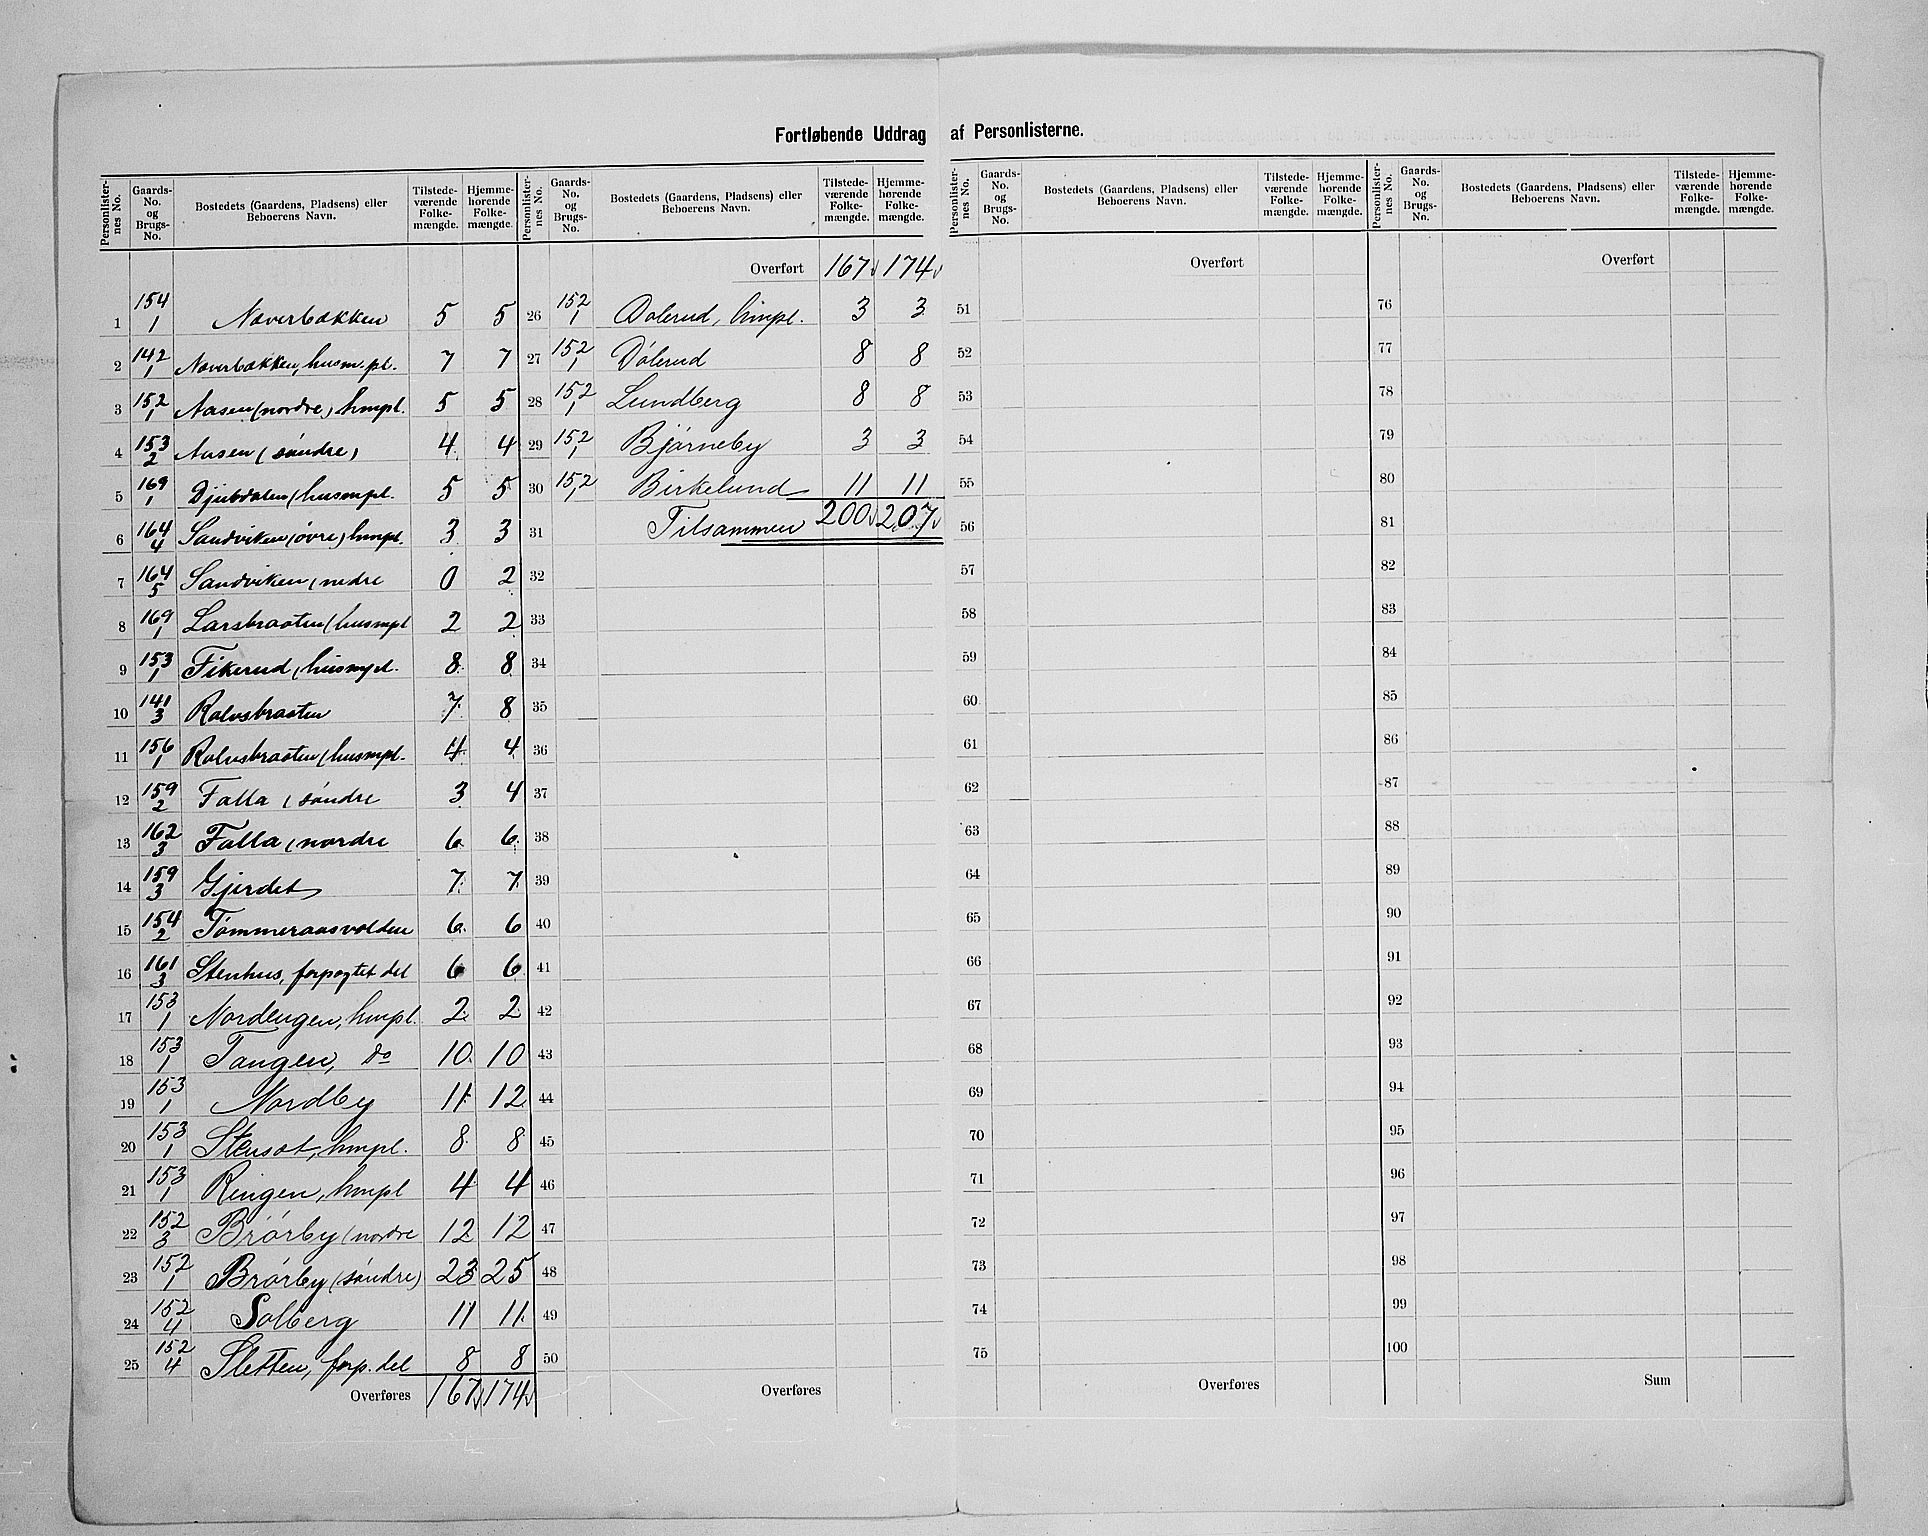 Fortløbende Uddrag af Personlisterne.
Personlister-nes No. Gaards-No. og Brugs-No. Bostedets (Gaardens, Pladsens) eller Beboerens Navn. Tilstede-værende Folke-mængde. Hjemme-hørende Folke-mængde.
1 154/1 Naverbakken 5 5
2 142/1 Naverbakken, husm.pl. 7 7
3 152/1 Aasen (nordre) hmpl. 5 5
4 153/2 Aasen (søndre) 4 4
5 169/1 Djubdalen (husmpl. 5 5
6 164/4 Sandviken (øvre) hmpl. 3 3
7 164/5 Sandviken (nedre 0 2
8 169/1 Larsbraaten (husmpl 2 2
9 153/1 Fikerud (husmpl. 8 8
10 141/3 Rolvsbraaten 7 8
11 156/1 Rolvsbraaten (husmpl. 4 4
12 159/2 Falla (søndre 3 4
13 162/3 Falla (nordre 6 6
14 159/3 Gjerdet 7 7
15 154/2 Tømmeraasvolden 6 6
16 161/3 Stenhus, forpagtet del 6 6
17 153/1 Nordengen, hmpl. 2 2
18 153/1 Tangen, do 10 10
19 153/1 Nordby 11 12
20 153/1 Stensæt, hmpl. 8 8
21 153/1 Ringen, hmpl 4 4
22 152/3 Brørby (nordre 12 12
23 152/1 Brørby (søndre) 23 25
24 152/4 Solberg 11 11
25 152/4 Sletten, forp. del 8 8
Overføres 167 174
Personlister-nes No. Gaards-No. og Brugs-No. Bostedets (Gaardens, Pladsens) eller Beboerens Navn. Tilstede-værende Folke-mængde. Hjemme-hørende Folke-mængde.
Overført 167 174
26 152/1 Dølerud, hmpl. 3 3
27 152/1 Dølerud 8 8
28 152/1 Lundberg 8 8
29 152/1 Bjørneby 3 3
30 152/1 Birkelund 11 11
31 Tilsammen 200 207
32
33
34
35
36
37
38
39
40
41
42
43
44
45
46
47
48
49
50
Overføres
Personlister-nes No. Gaards-No. og Brugs-No. Bostedets (Gaardens, Pladsens) eller Beboerens Navn. Tilstede-værende Folke-mængde. Hjemme-hørende Folke-mængde.
Overført
51
52
53
54
55
56
57
58
59
60
61
62
63
64
65
66
67
68
69
70
71
72
73
74
75
Overføres
Personlister-nes No. Gaards-No. og Brugs-No. Bostedets (Gaardens, Pladsens) eller Beboerens Navn. Tilstede-værende Folke-mængde. Hjemme-hørende Folke-mængde.
Overført
76
77
78
79
80
81
82
83
84
85
86
87
88
89
90
91
92
93
94
95
96
97
98
99
100
Sum